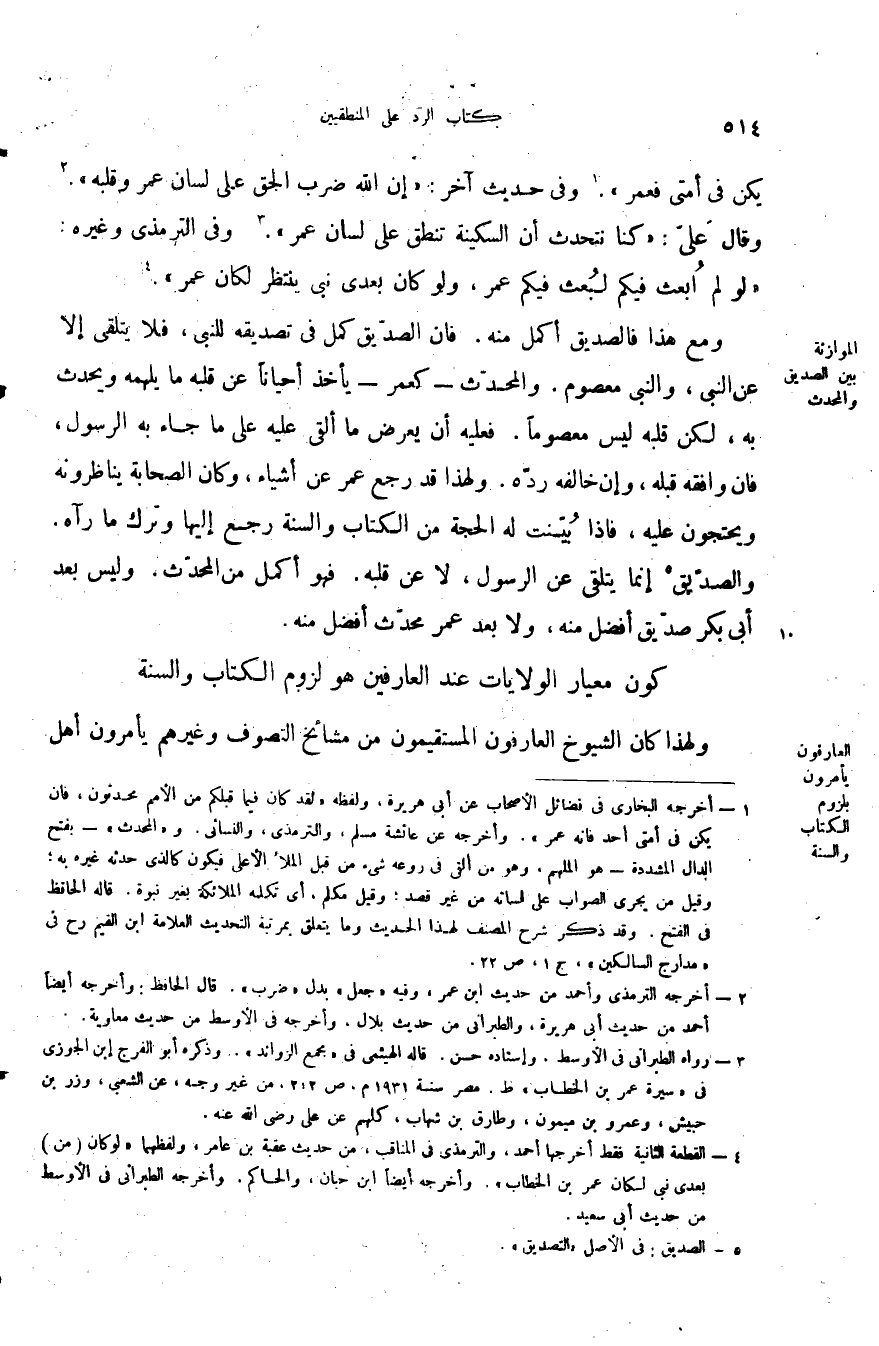 ٥١٤
كتاب الرد على المنطقيين
يكن فى أمتى فعمر».١ وفى حديث آخر: «إن الله ضرب الحق على لسان عمر وقلبه».٢
وقال علىّ: «كنا نتحدث أن السكينة تنطق على لسان عمر».٣ وفى الترمذى وغيره:
«لو لم أُبعث فيكم لبُعث فيكم عمر، ولو كان بعدى نبى ينتظر لكان عمر».٤
ومع هذا فالصديق أكمل منه. فان الصدّيق كمل فى تصديقه للنبى، فلا يتلقى إلا
عن النبى، والنبى معصوم. والمحدّث — كعمر — يأخذ أحياناً عن قلبه ما يلهمه ويحدث
به، لكن قلبه ليس معصوماً. فعليه أن يعرض ما ألقى عليه على ما جاء به الرسول،
فان وافقه قبله، وإن خالفه ردّه. ولهذا قد رجع عمر عن أشياء، وكان الصحابة يناظرونه
ويحتجون عليه، فاذا بُيّنت له الحجة من الكتاب والسنة رجع إليها وترك ما رآه.
والصدّيق٥ إنما يتلقى عن الرسول، لا عن قلبه. فهو أكمل من المحدّث. وليس بعد
أبى بكر صدّيق أفضل منه، ولا بعد عمر محدّث أفضل منه.
١٠
الموازنة
بين الصديق
والمحدث
كون معيار الولايات عند العارفين هو لزوم الكتاب والسنة
ولهذا كان الشيوخ العارفون المستقيمون من مشائخ التصوف وغيرهم يأمرون أهل
العارفون
يأمرون
بلزوم
الكتاب
والسنة
١ — أخرجه البخارى فى فضائل الأصحاب عن أبى هريرة، ولفظه «لقد كان فيما قبلكم من الأمم محدثون، فان
يكن فى أمتى أحد فانه عمر». وأخرجه عن عائشة مسلم، والترمذى، والنسائى. و«المحدث» — بفتح
الدال المشددة — هو الملهم، وهو من ألقى فى روعه شىء من قبل الملأ الأعلى فيكون كالذى حدثه غيره به؛
وقيل من يجرى الصواب على لسانه من غير قصد؛ وقيل مكلم، أى تكلمه الملائكة بغير نبوة. قاله الحافظ
فى الفتح. وقد ذكر شرح المصنف لهذا الحديث وما يتعلق بمرتبة التحديث العلامة ابن القيم رح فى
«مدارج السالكين»، ج ١، ص ٢٢.
٢ — أخرجه الترمذى وأحمد من حديث ابن عمر، وفيه «جعل» بدل «ضرب». قال الحافظ: وأخرجه أيضاً
أحمد من حديث أبى هريرة، والطبرانى من حديث بلال. وأخرجه فى الأوسط من حديث معاوية.
٣ — رواه الطبرانى فى الأوسط. وإسناده حسن. قاله الهيثمى فى «مجمع الزوائد». وذكره أبو الفرج ابن الجوزى
فى «سيرة عمر بن الخطاب» ط. مصر سنة ١٩٣١ م، ص ٢١٢، من غير وجه، عن الشعبى، وزر بن
حبيش، وعمرو بن ميمون، وطارق بن شهاب، كلهم عن على رضى الله عنه.
٤ — القطعة الثانية فقط أخرجها أحمد، والترمذى فى المناقب، من حديث عقبة بن عامر، ولفظهما «لو كان (من)
بعدى نبى لكان عمر بن الخطاب». وأخرجه أيضاً ابن حبان، والحاكم. وأخرجه الطبرانى فى الأوسط
من حديث أبى سعيد.
٥ — الصديق: فى الأصل «التصديق».